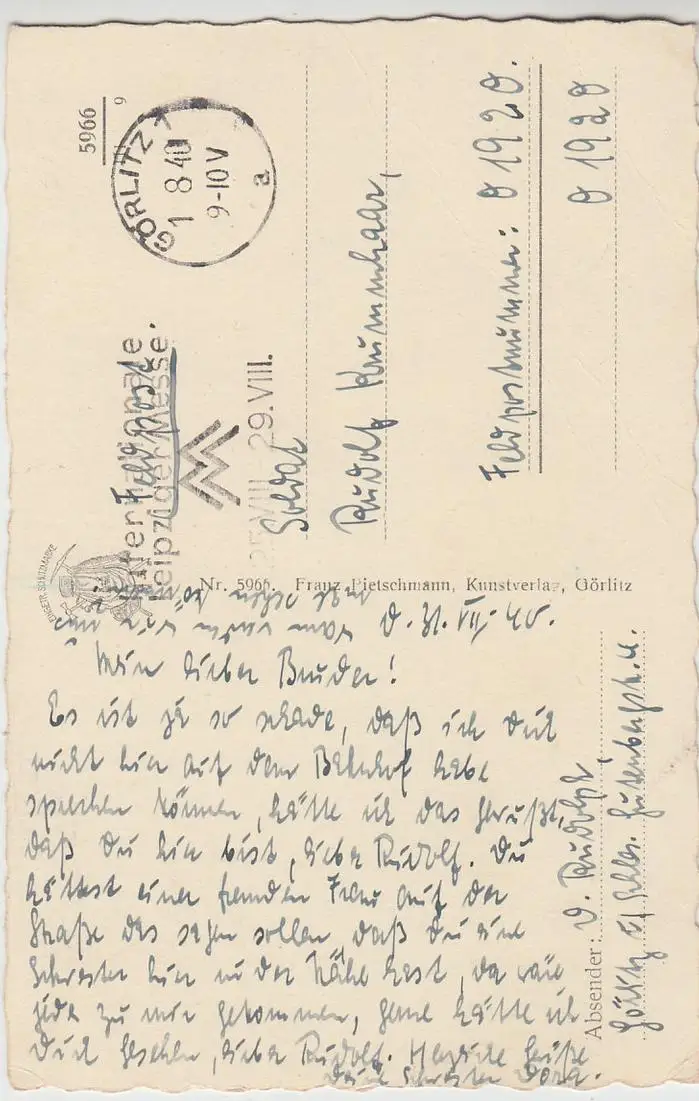 5966
9
GÖRLITZ 1
1 8 40
9-10 V
a
Feldpost
Internationale
Leipziger Messe.
25.VIII.-29.VIII.
Soldat
Rudolf Krummhaar,
Feldpostnummer: 01920.
01920
Nr. 5966. Franz Pietschmann, Kunstverlag, Görlitz
d. 31. VII. 40.
Mein lieber Bruder!
Es ist ja so schade, daß ich Dich
nicht hier auf dem Bahnhof habe
sprechen können, hätte ich das gewußt,
daß Du hier bist, lieber Rudolf. Du
hättest einer fremden Frau auf der
Straße das sagen sollen, daß Du eine
Schwester hier in der Nähe hast, da wäre
jede zu mir gekommen, gerne hätte ich
Dich gesehen, lieber Rudolf. Herzliche Grüße
Deine Schwester Dora.
Absender: D. Rudolph,
Görlitz Schles. Gutenbergstr.